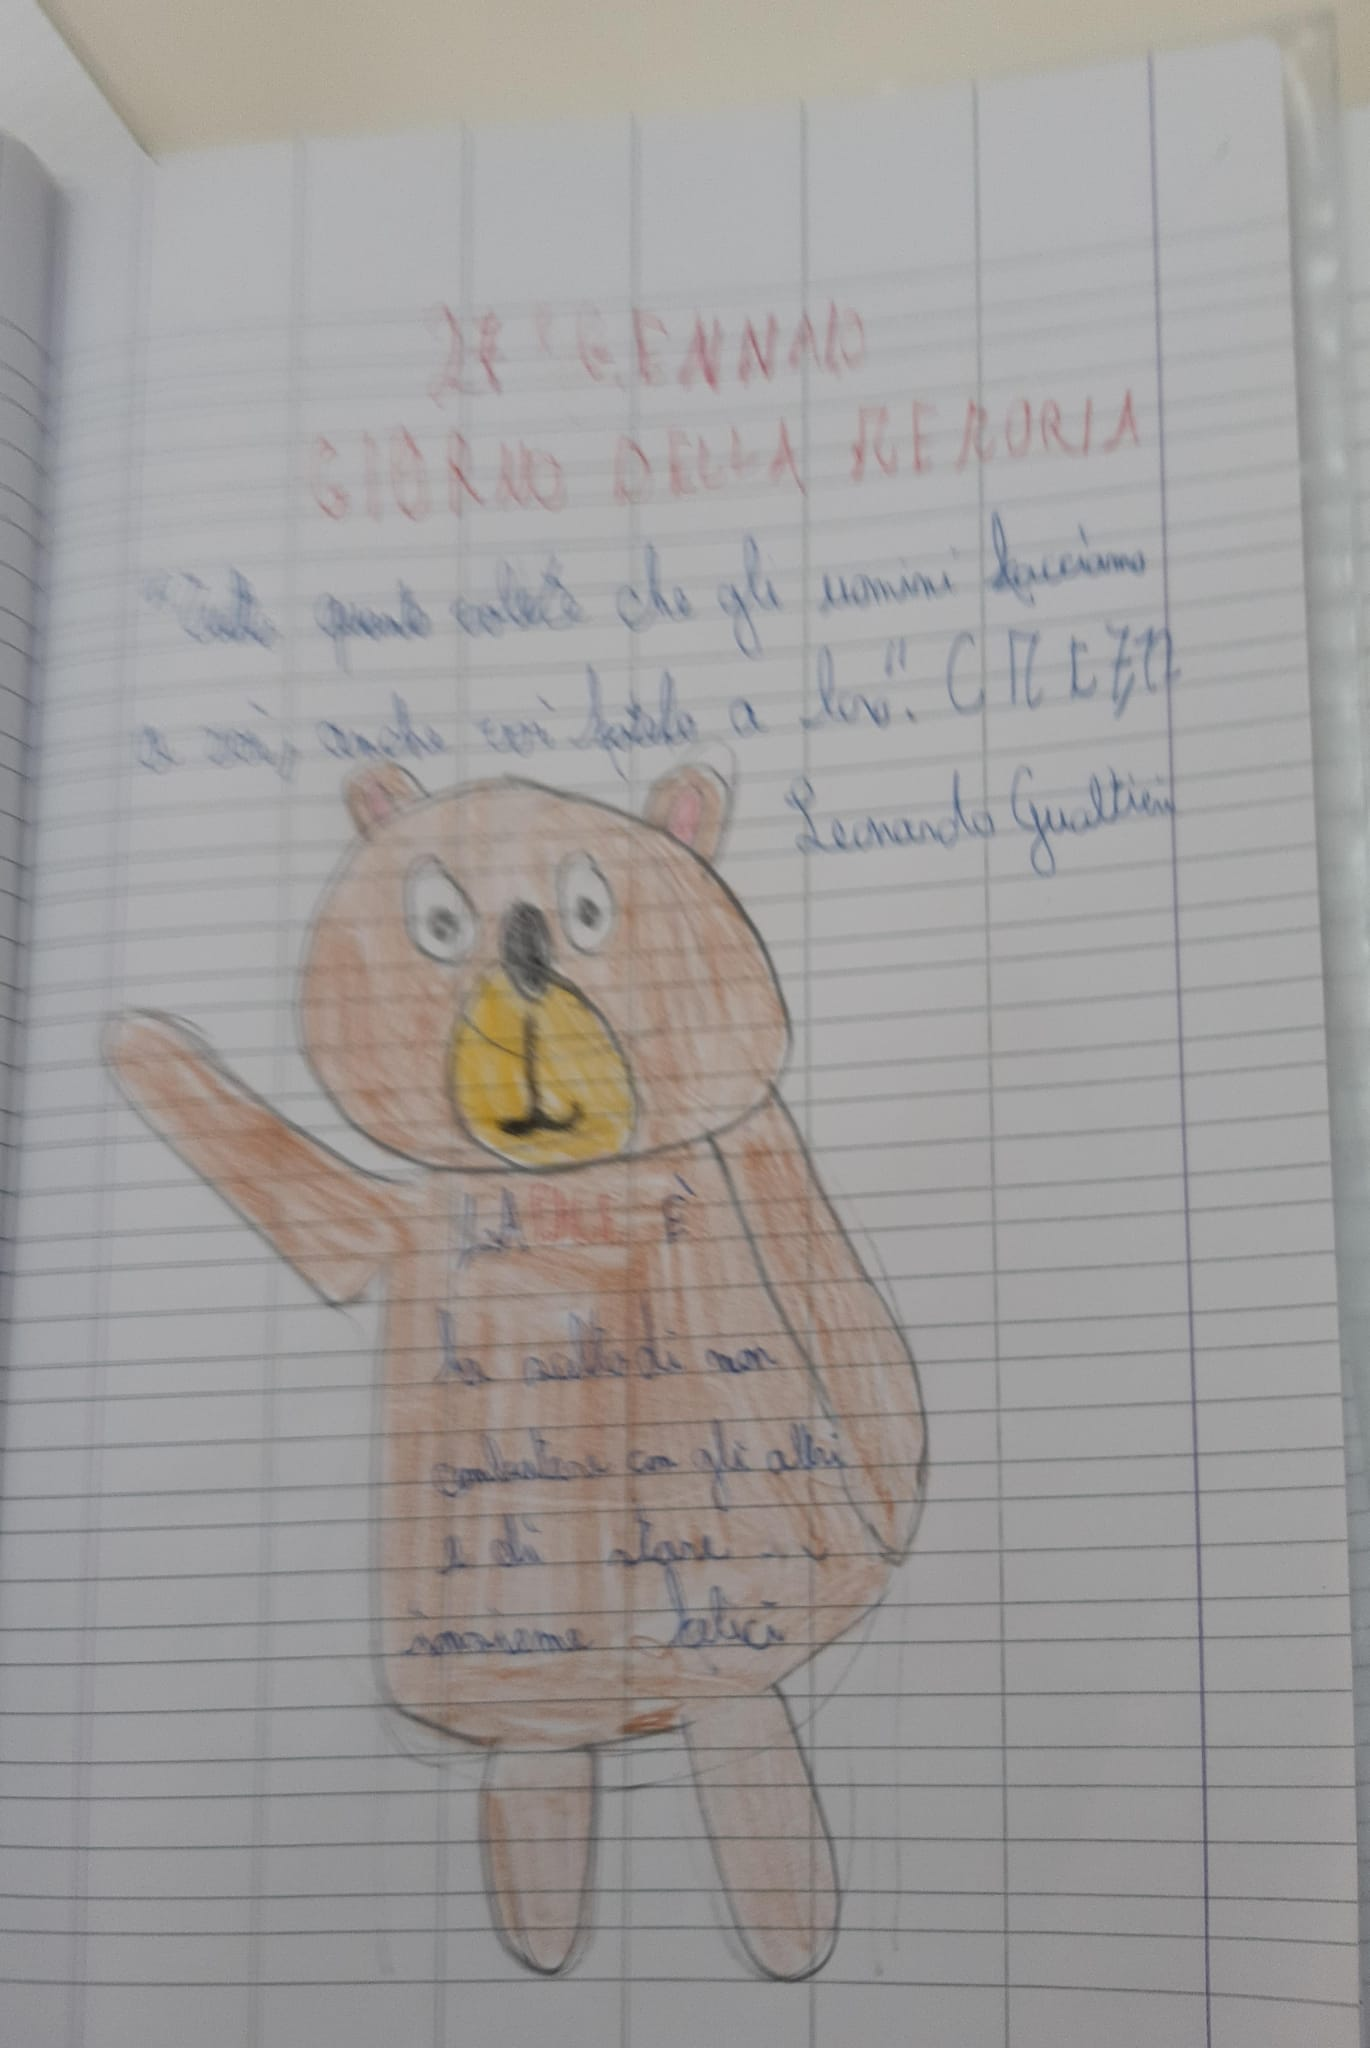 27 GENNAIO
GIORNO DELLA MEMORIA
"Tutto quanto volete che gli uomini facciamo
a voi, anche voi fatelo a loro".
Leonardo Gualtieri
LA PACE È
la scelta di non
combattere con gli altri
e di stare
insieme felici